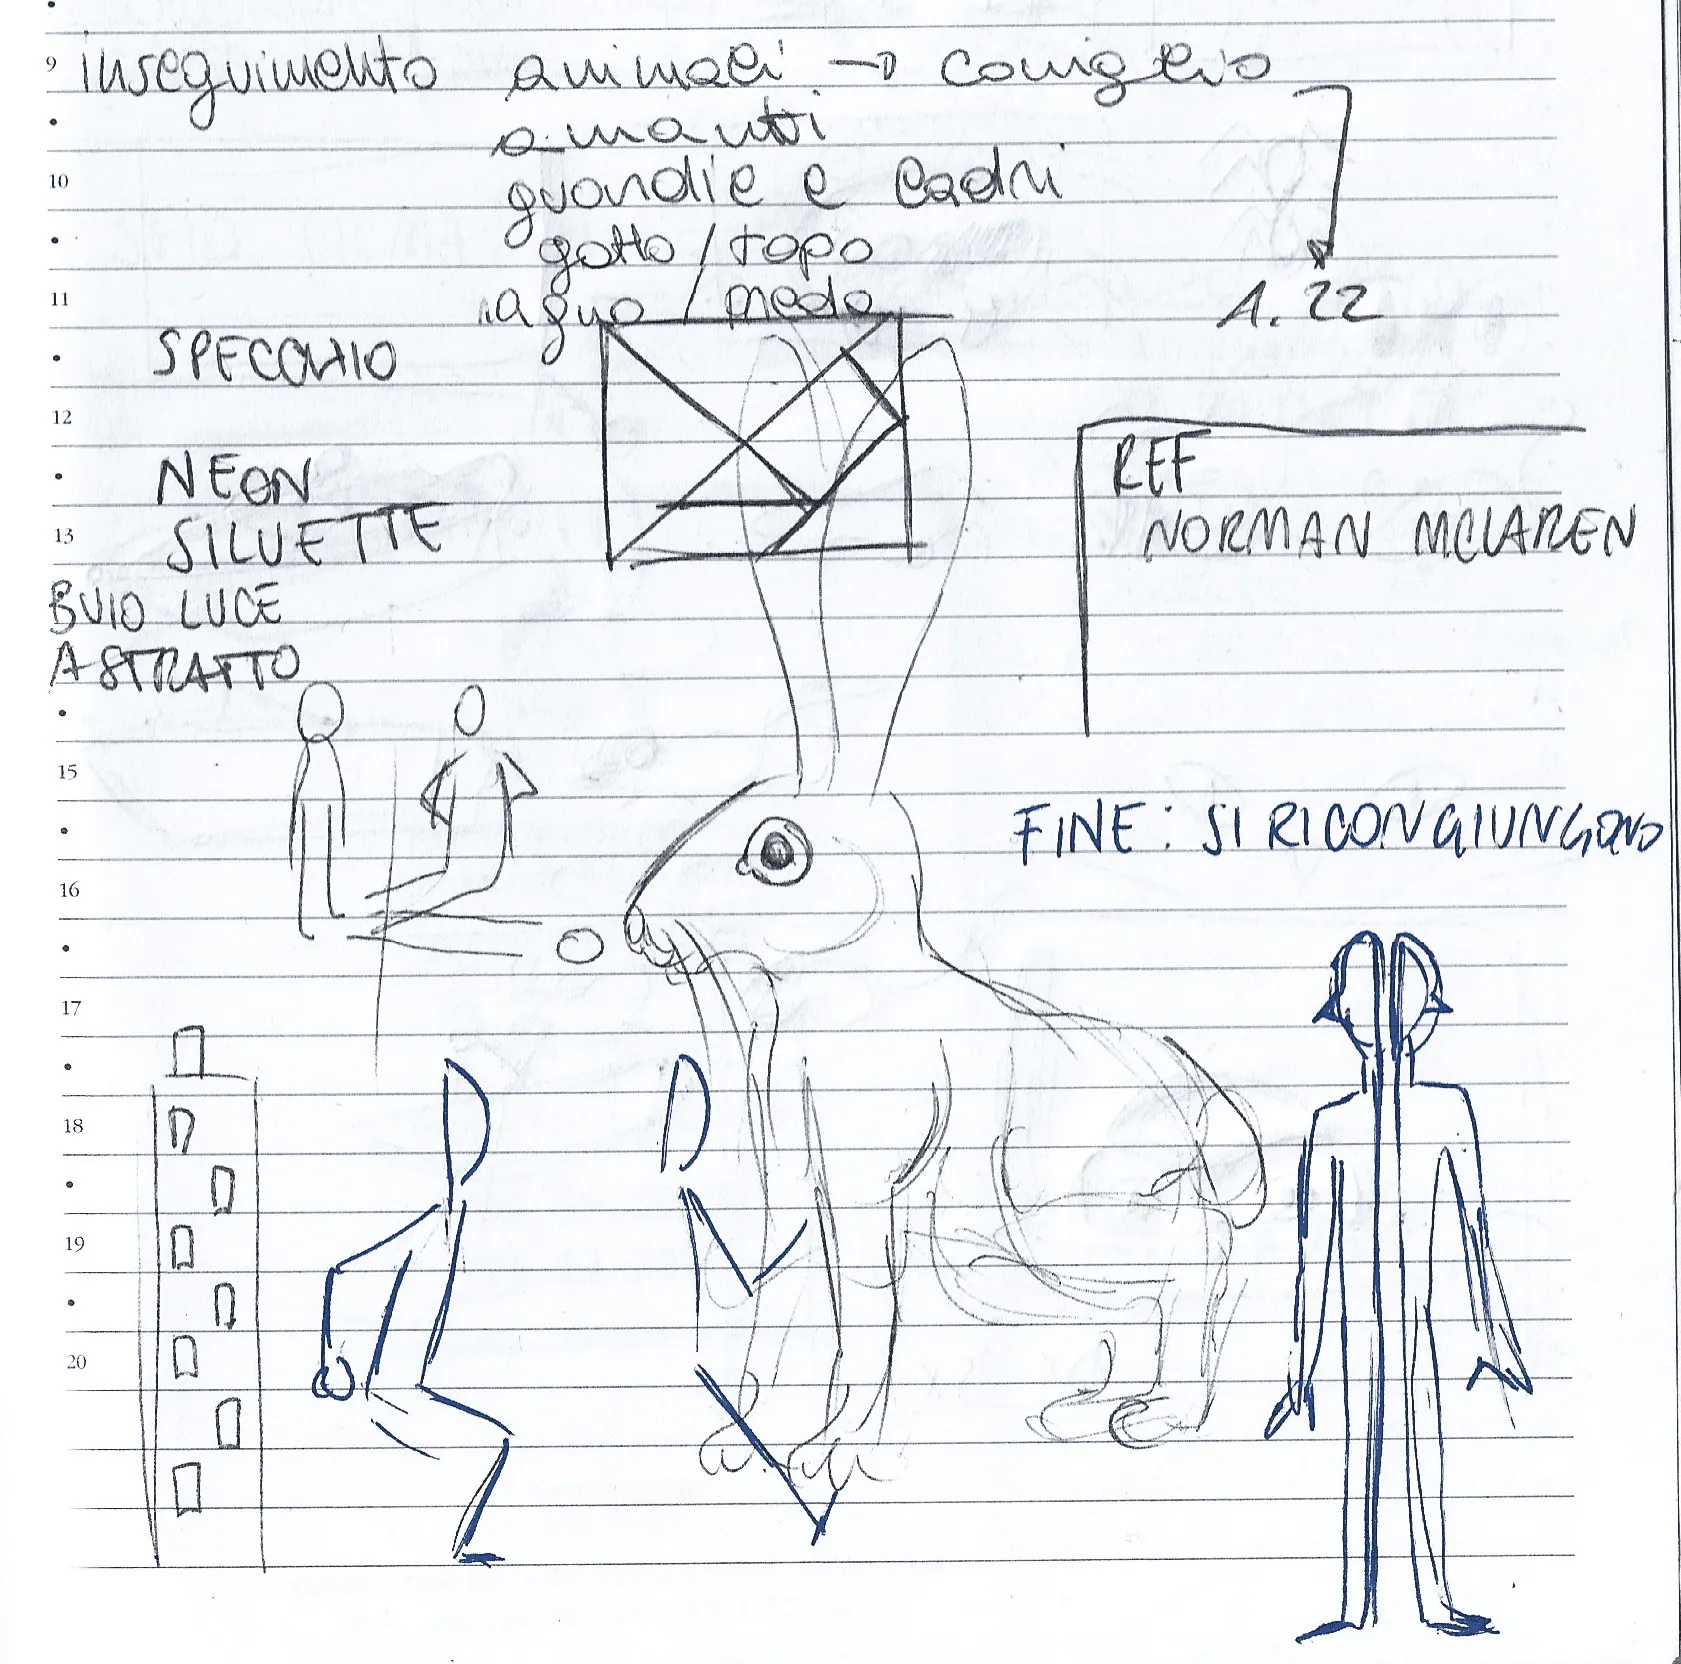 9
inseguimento animali → coniglio
amanti
10
guardie e ladri
gatto / topo
11
1.22
SPECCHIO
12
REF
NEON
NORMAN MCLAREN
13
SILUETTE
BUIO LUCE
ASTRATTO
15
FINE: SI RICONGIUNGONO
16
17
18
19
20